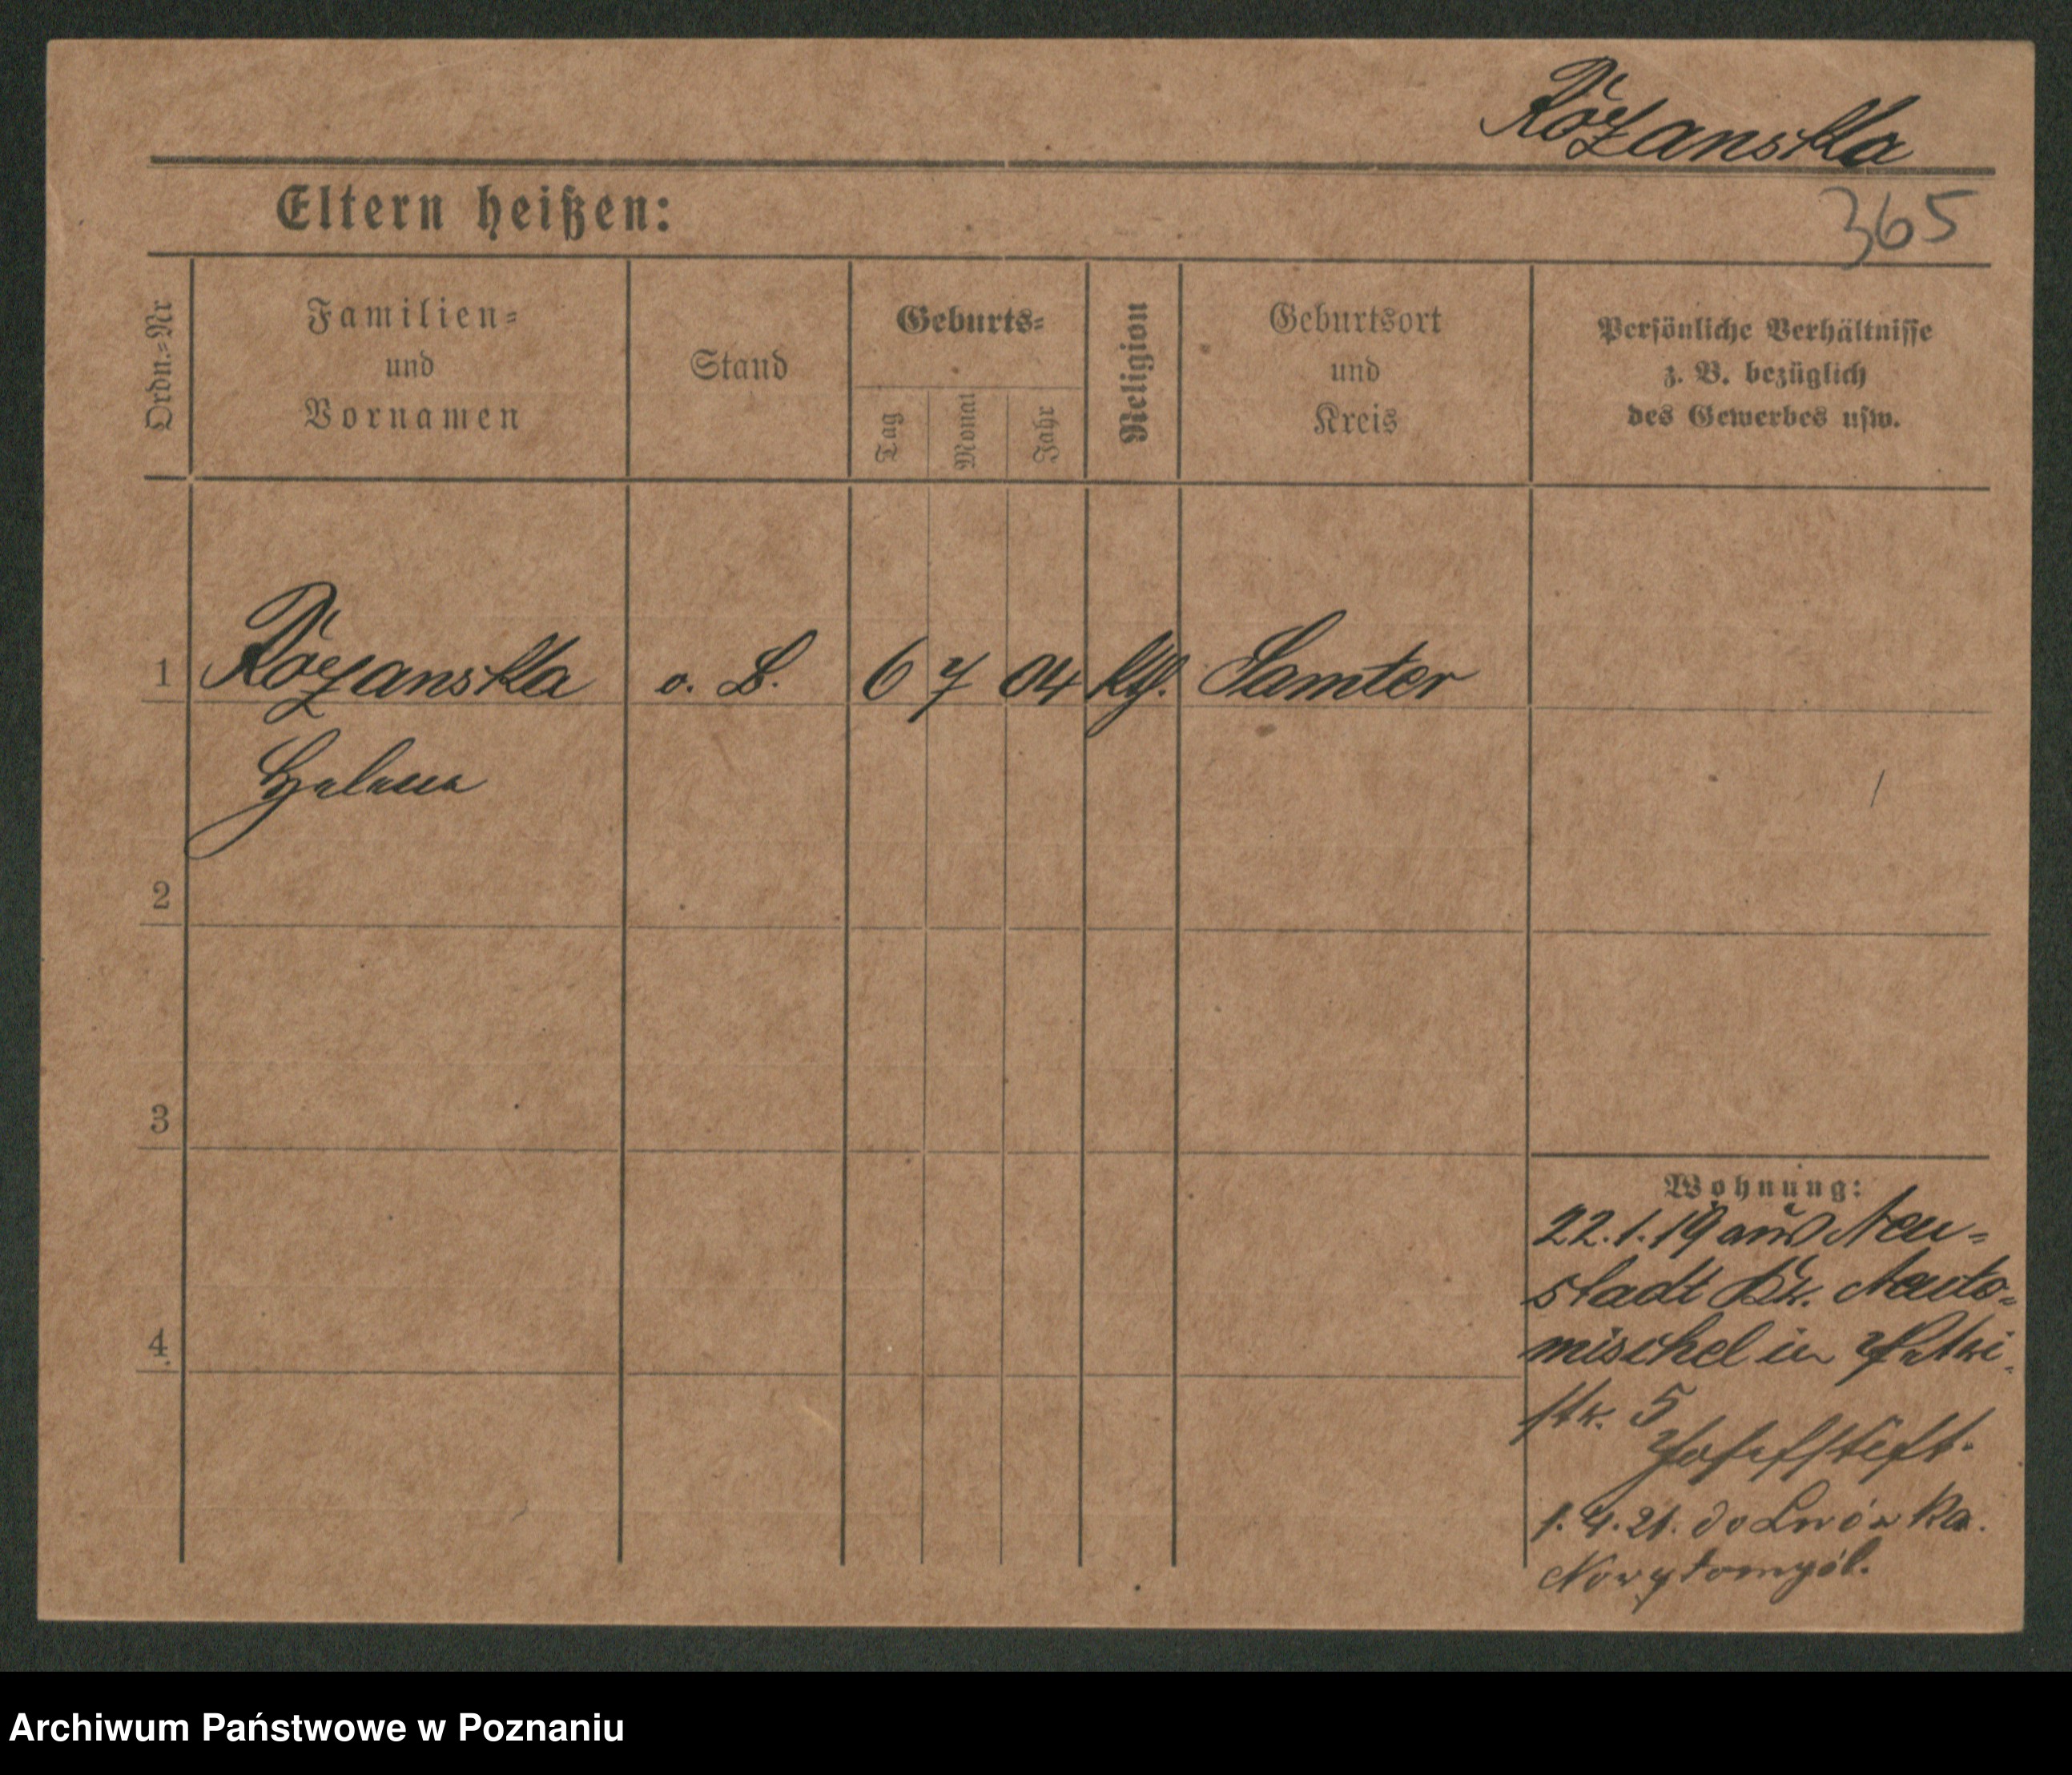 Rożanska
365
Eltern heißen:
Ordn.=Nr
Familien=
und
Vornamen
Stand
Geburts=
Tag
Monat
Jahr
Religion
Geburtsort
und
Kreis
Persönliche Verhältnisse
z. B. bezüglich
des Gewerbes usw.
1 Rożanska o. B. 6 7 04 kth. Samter
Helena
2
3
4
Wohnung:
22.1.19 aus Neu=
stadt Kr. Neuto=
mischel in Petri-
str. 5
Josefstift.
1. 4. 21. do Lwówka.
Nowytomyśl.
Archiwum Państwowe w Poznaniu